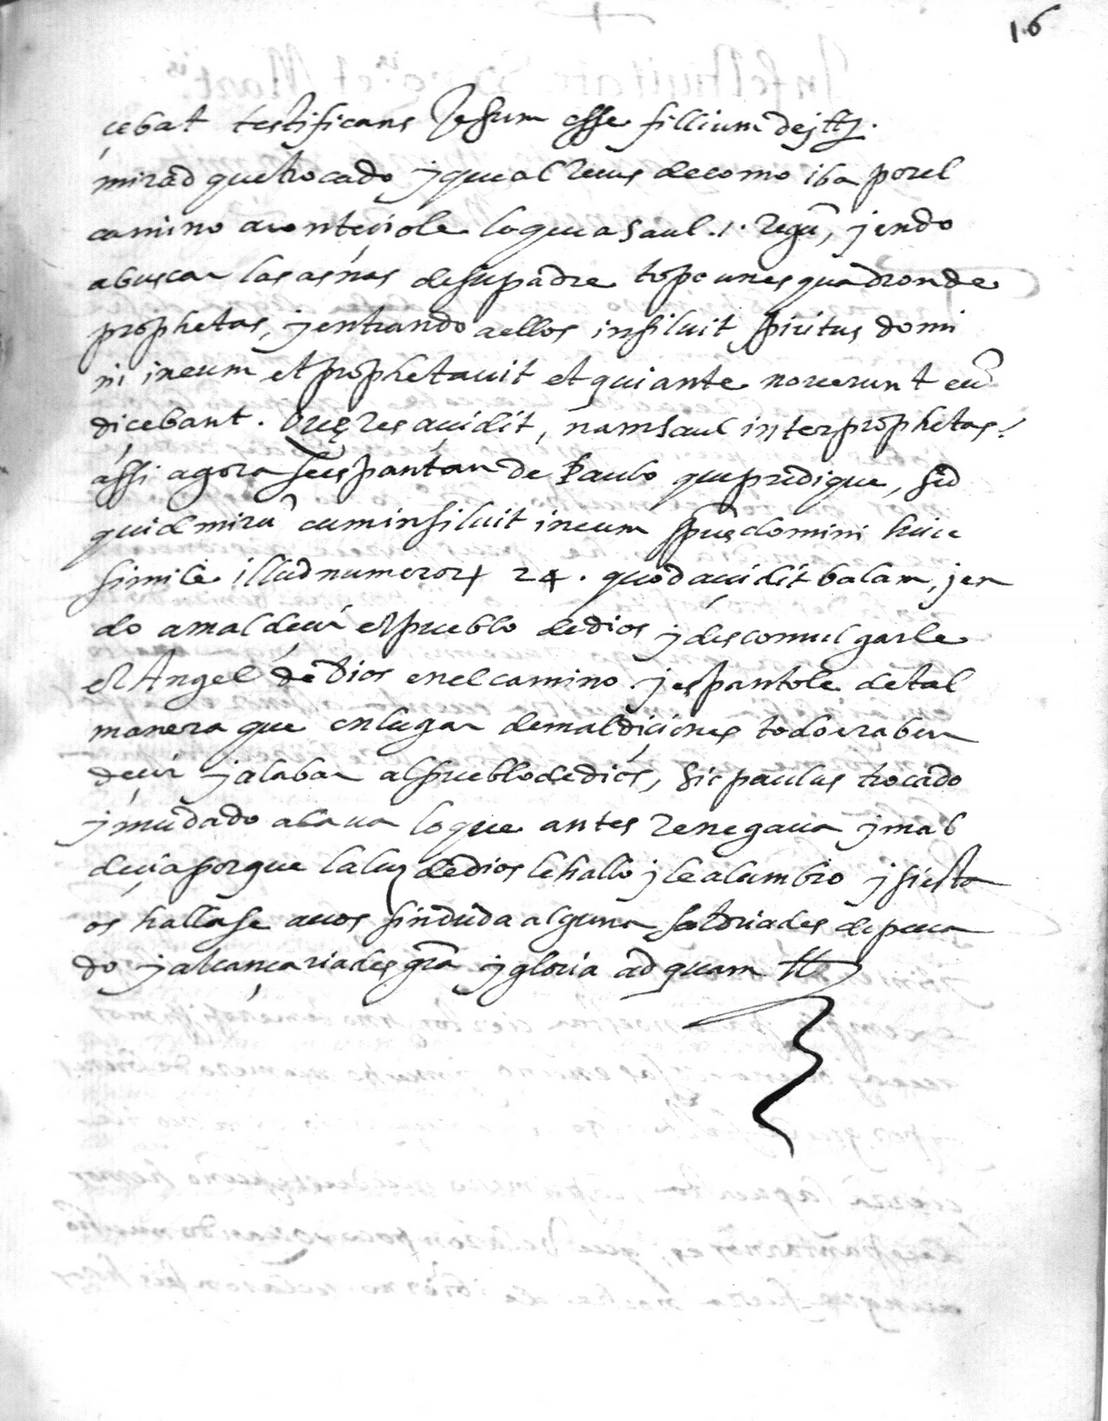 16
cebat testificans Jesum esse fillium dej etc.
mirad que trocado y que al reves de como iba por el
camino aconteciole lo que a Saul .1. Regũ, jendo
a buscar las asnas de su padre tope un esquadron de
prophetas, y entrando a ellos insiluit spiritus domi
ni in eum et prophetauit et qui ante noverunt eũ
dicebant. Quę res acidit, nam Saul inter prophetas?
assi agora se espantan de Paulo que predique, sed
quid mirũ cum insiluit in eum spũs domini huic
simile illud numeror 24. quod acidit balam, jen
do a maldecir el pueblo de dios y descomulgarle
el Angel de Dios en el camino y espantole de tal
manera que en lugar de maldiciones todo era ben
decir y alabar al pueblo de dios, Sic paulus trocado
y mudado alaua lo que antes renegaua y mal
decia porque la luz de dios le hallo y le alumbro y si esta
os hallase a uos sin duda alguna saldriades de peca
do y alcançariades grã y gloria ad quam etc